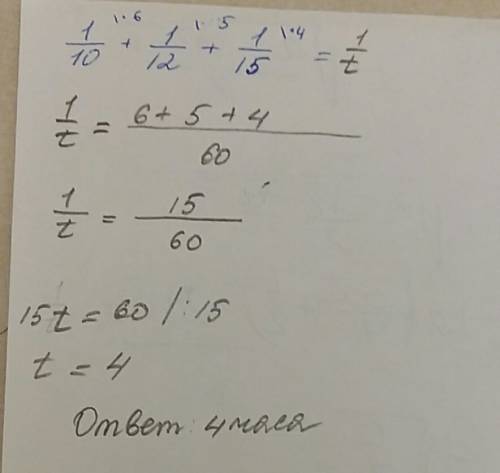 1/10 \·6 + 1/12 \·5 + 1/15 \·4 = 1/t
1/t = 6 + 5 + 4 / 60
1/t = 15/60
15t = 60 /:15
t = 4
Ответ: 4 часа